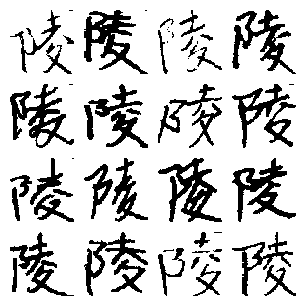 陵陵陵陵
陵陵陵陵
陵陵陵陵
陵陵陵陵